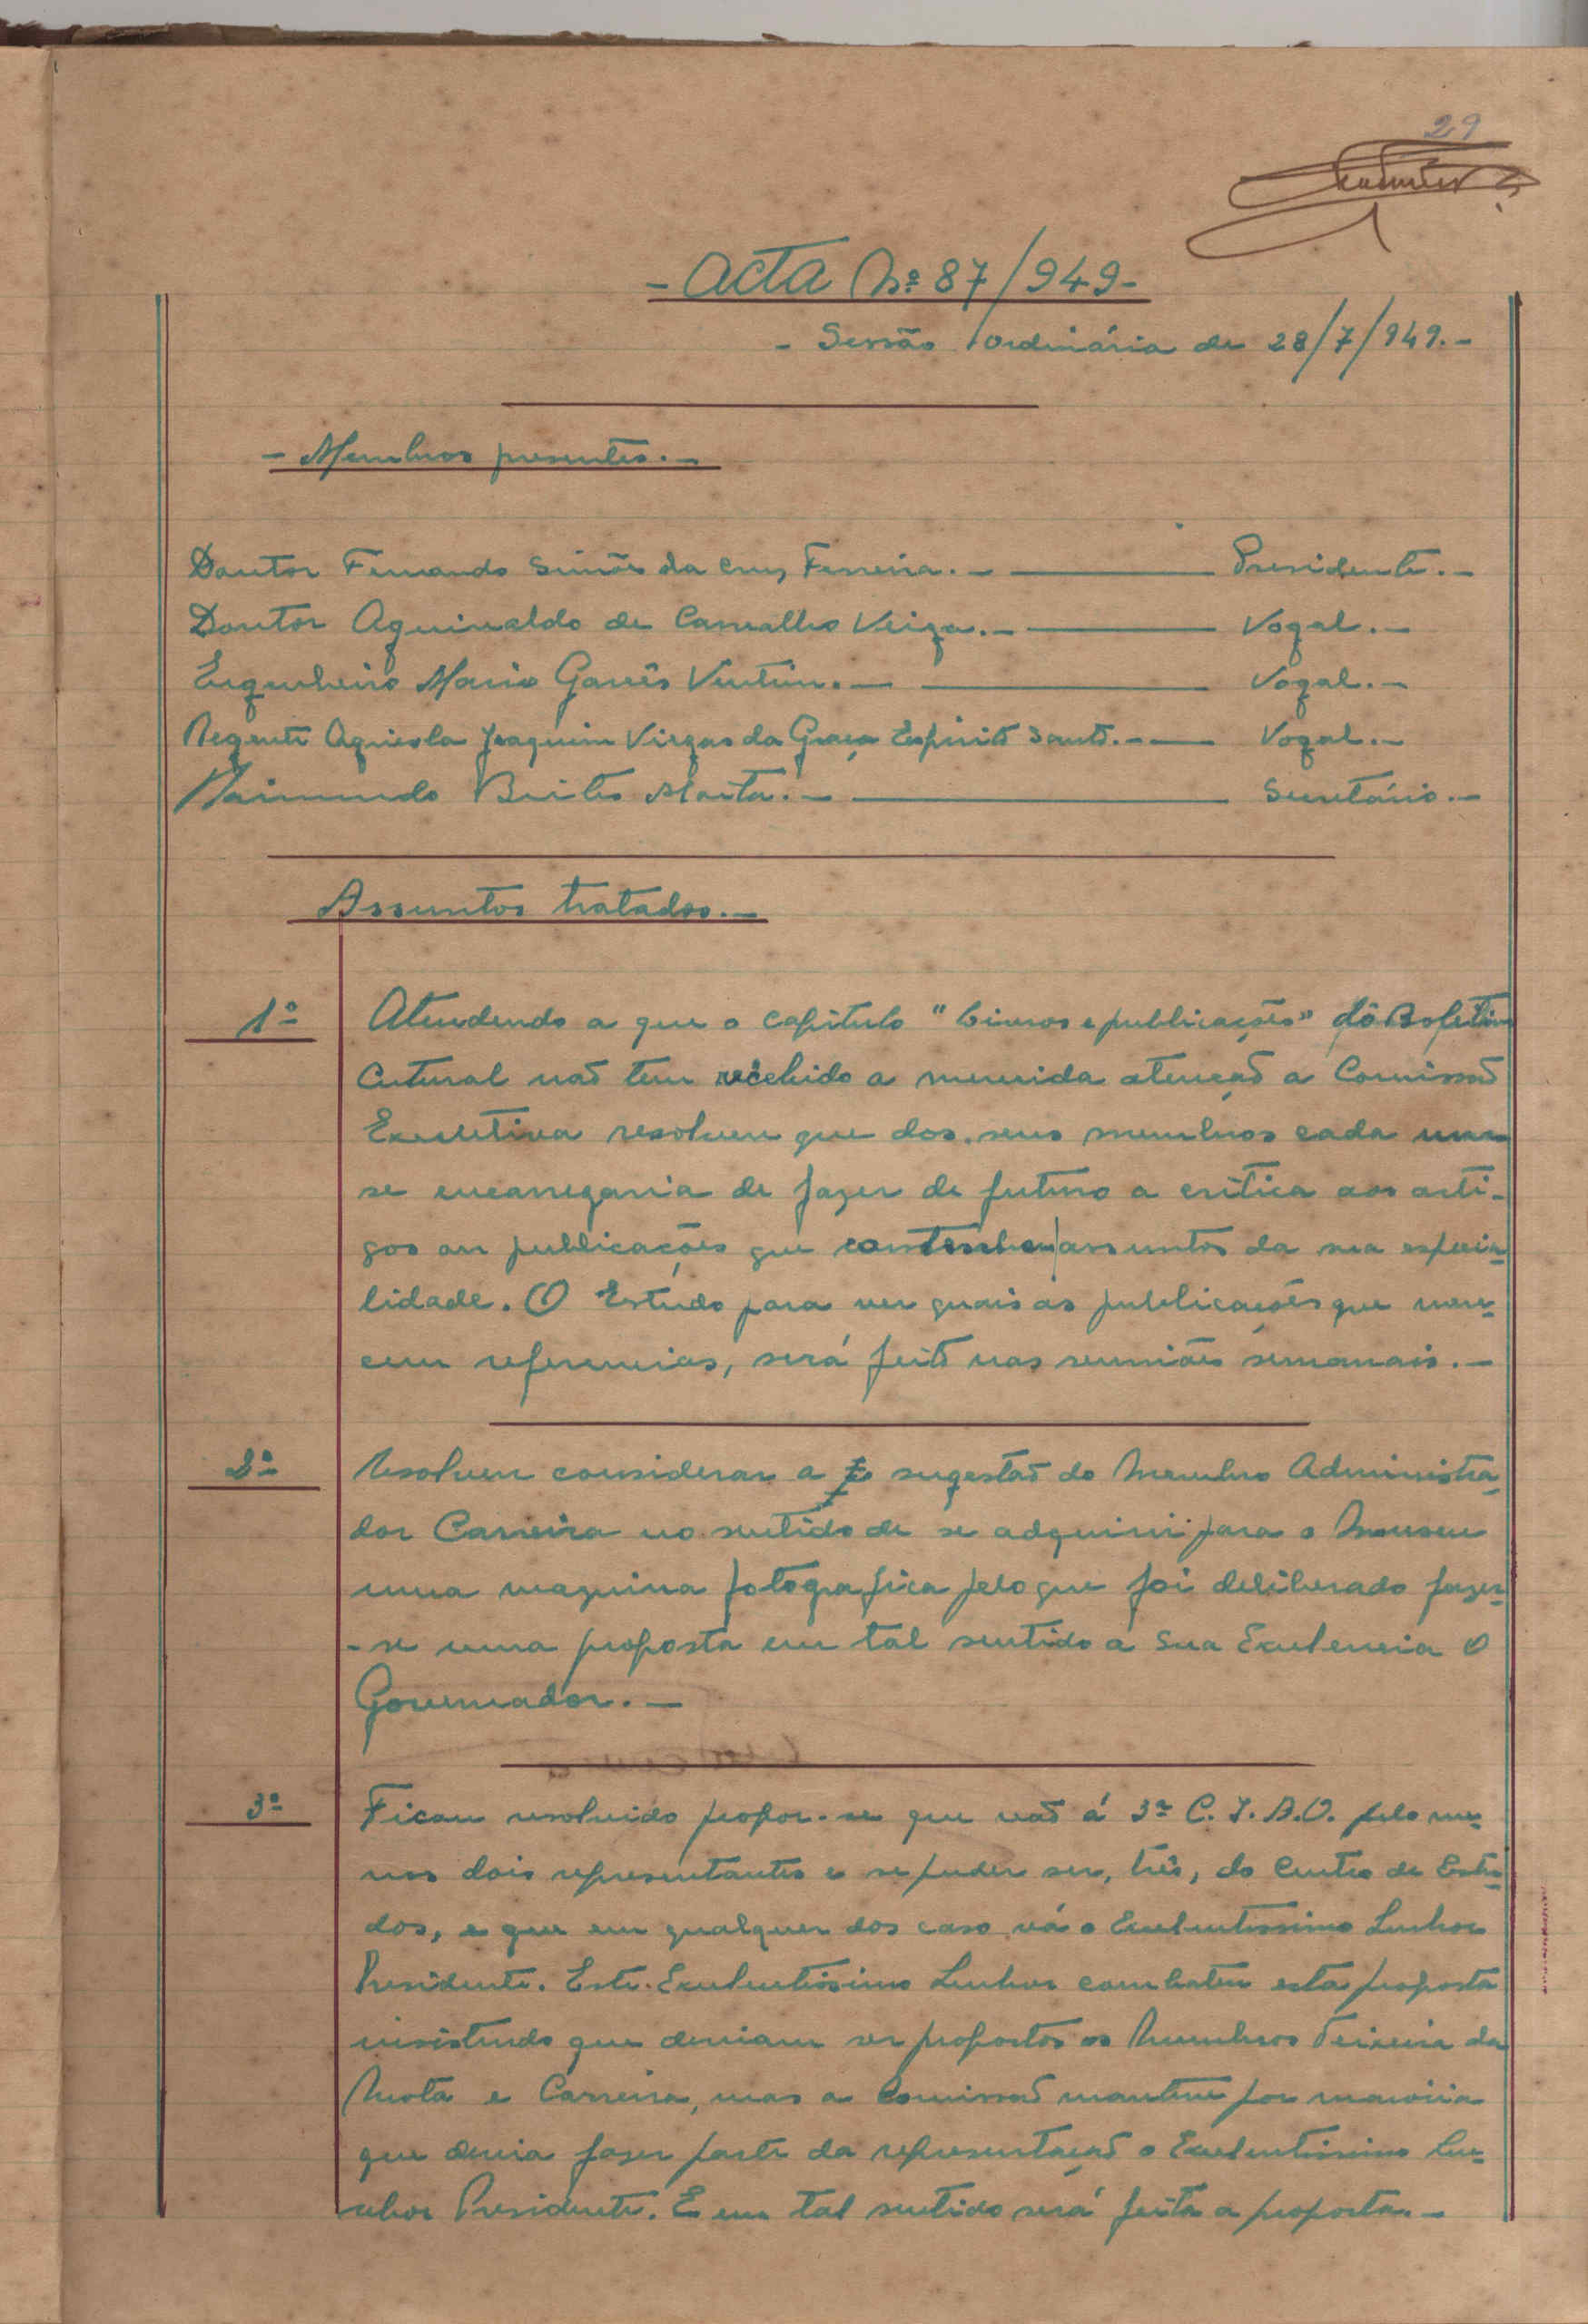 29
- Acta Nº 87/949 -
- Sessão Ordinária de 28/7/949. -
- Membros presentes. -
Doutor Fernando Simões da Cruz Ferreira. - Presidente. -
Doutor Aguinaldo de Carvalho Veiga. - Vogal. -
Engenheiro Mario Garcês Ventim. - Vogal. -
Regente Agricola Joaquim Viegas da Graça Espirito Santo. - Vogal. -
Raimundo Brites Moita. - Secretário. -
Assuntos tratados. -
1º Atendendo a que o capitulo "Livros e publicações" do Boletim
Cutural naõ tem recebido a merecida atençaõ a Comissaõ
Executiva resolveu que dos seus membros cada um
se encarregaria de fazer de futuro a critica aos arti-
gos ou publicações que contenham assuntos da sua especia-
lidade. O Estudo para ver quais as publicações que mere-
cem referencias, será feito nas reuniões semanais. -
2º Resolveu considerar a sugestaõ do Membro Administra-
dor Carreira no sentido de se adquirir para o Museu
uma maquina fotografica pelo que foi deliberado fazer-
- se uma proposta em tal sentido a Sua Excelencia O
Governador. -
3º Ficou resolvido propor-se que vaõ á 3ª C. I. A. O. pelo me-
nos dois representantes e se puder ser, três, do Centro de Estu-
dos, e que em qualquer dos caso vá o Excelentissimo Senhor
Presidente. Este Excelentissimo Senhor combateu esta proposta
insistindo que deviam ser propostos os Membros Teixeira da
Mota e Carreira, mas a Comissaõ manteve por maioria
que devia fazer parte da representaçaõ o Excelentissimo Se-
nhor Presidente. E em tal sentido será feita a proposta. -